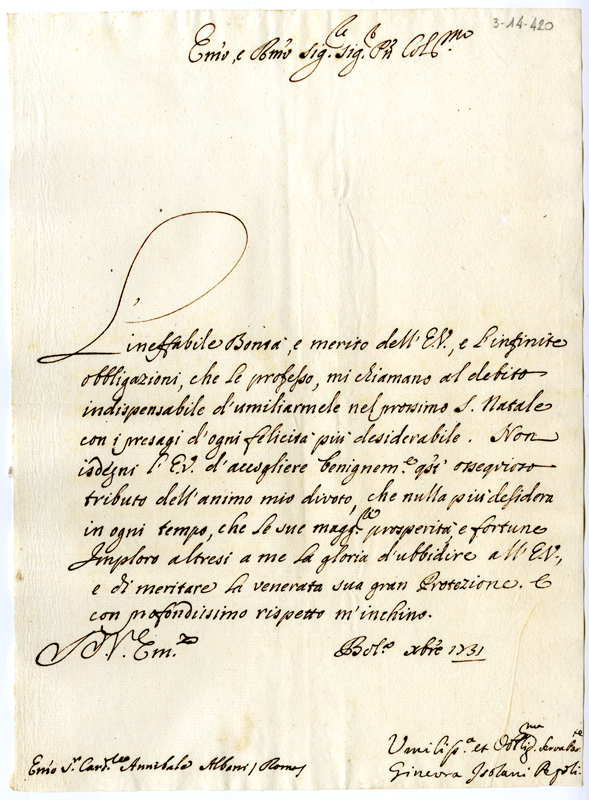 3-14-420
Em̃o, e Rm̃o Sig.re Sig.r Pñ Col.mo
L'ineffabile Bontà, e merito dell'E.V., e l'infinite
obbligazioni, che le professo, mi chiamano al debito
indispensabile d'umiliarmele nel prossimo S. Natale
con i presagi d'ogni felicità più desiderabile. Non
isdegni l'E.V. d'accogliere benignem.e q̃sto ossequioso
tributo dell'animo mio divoto, che nulla più desidera
in ogni tempo, che le sue magg.ri prosperità, e fortune
Imploro altresi a me la gloria d'ubbidire all'E.V.,
e di meritare la venerata sua gran Protezione. E
con profondissimo rispetto m'inchino.
D.V. Em.za Bol.a Xbre 1731
Umiliss.a et Obblig.ma Serva
Em̃o S.r Card.le Annibale Albani / Roma /
Ginevra Isolani Pepoli